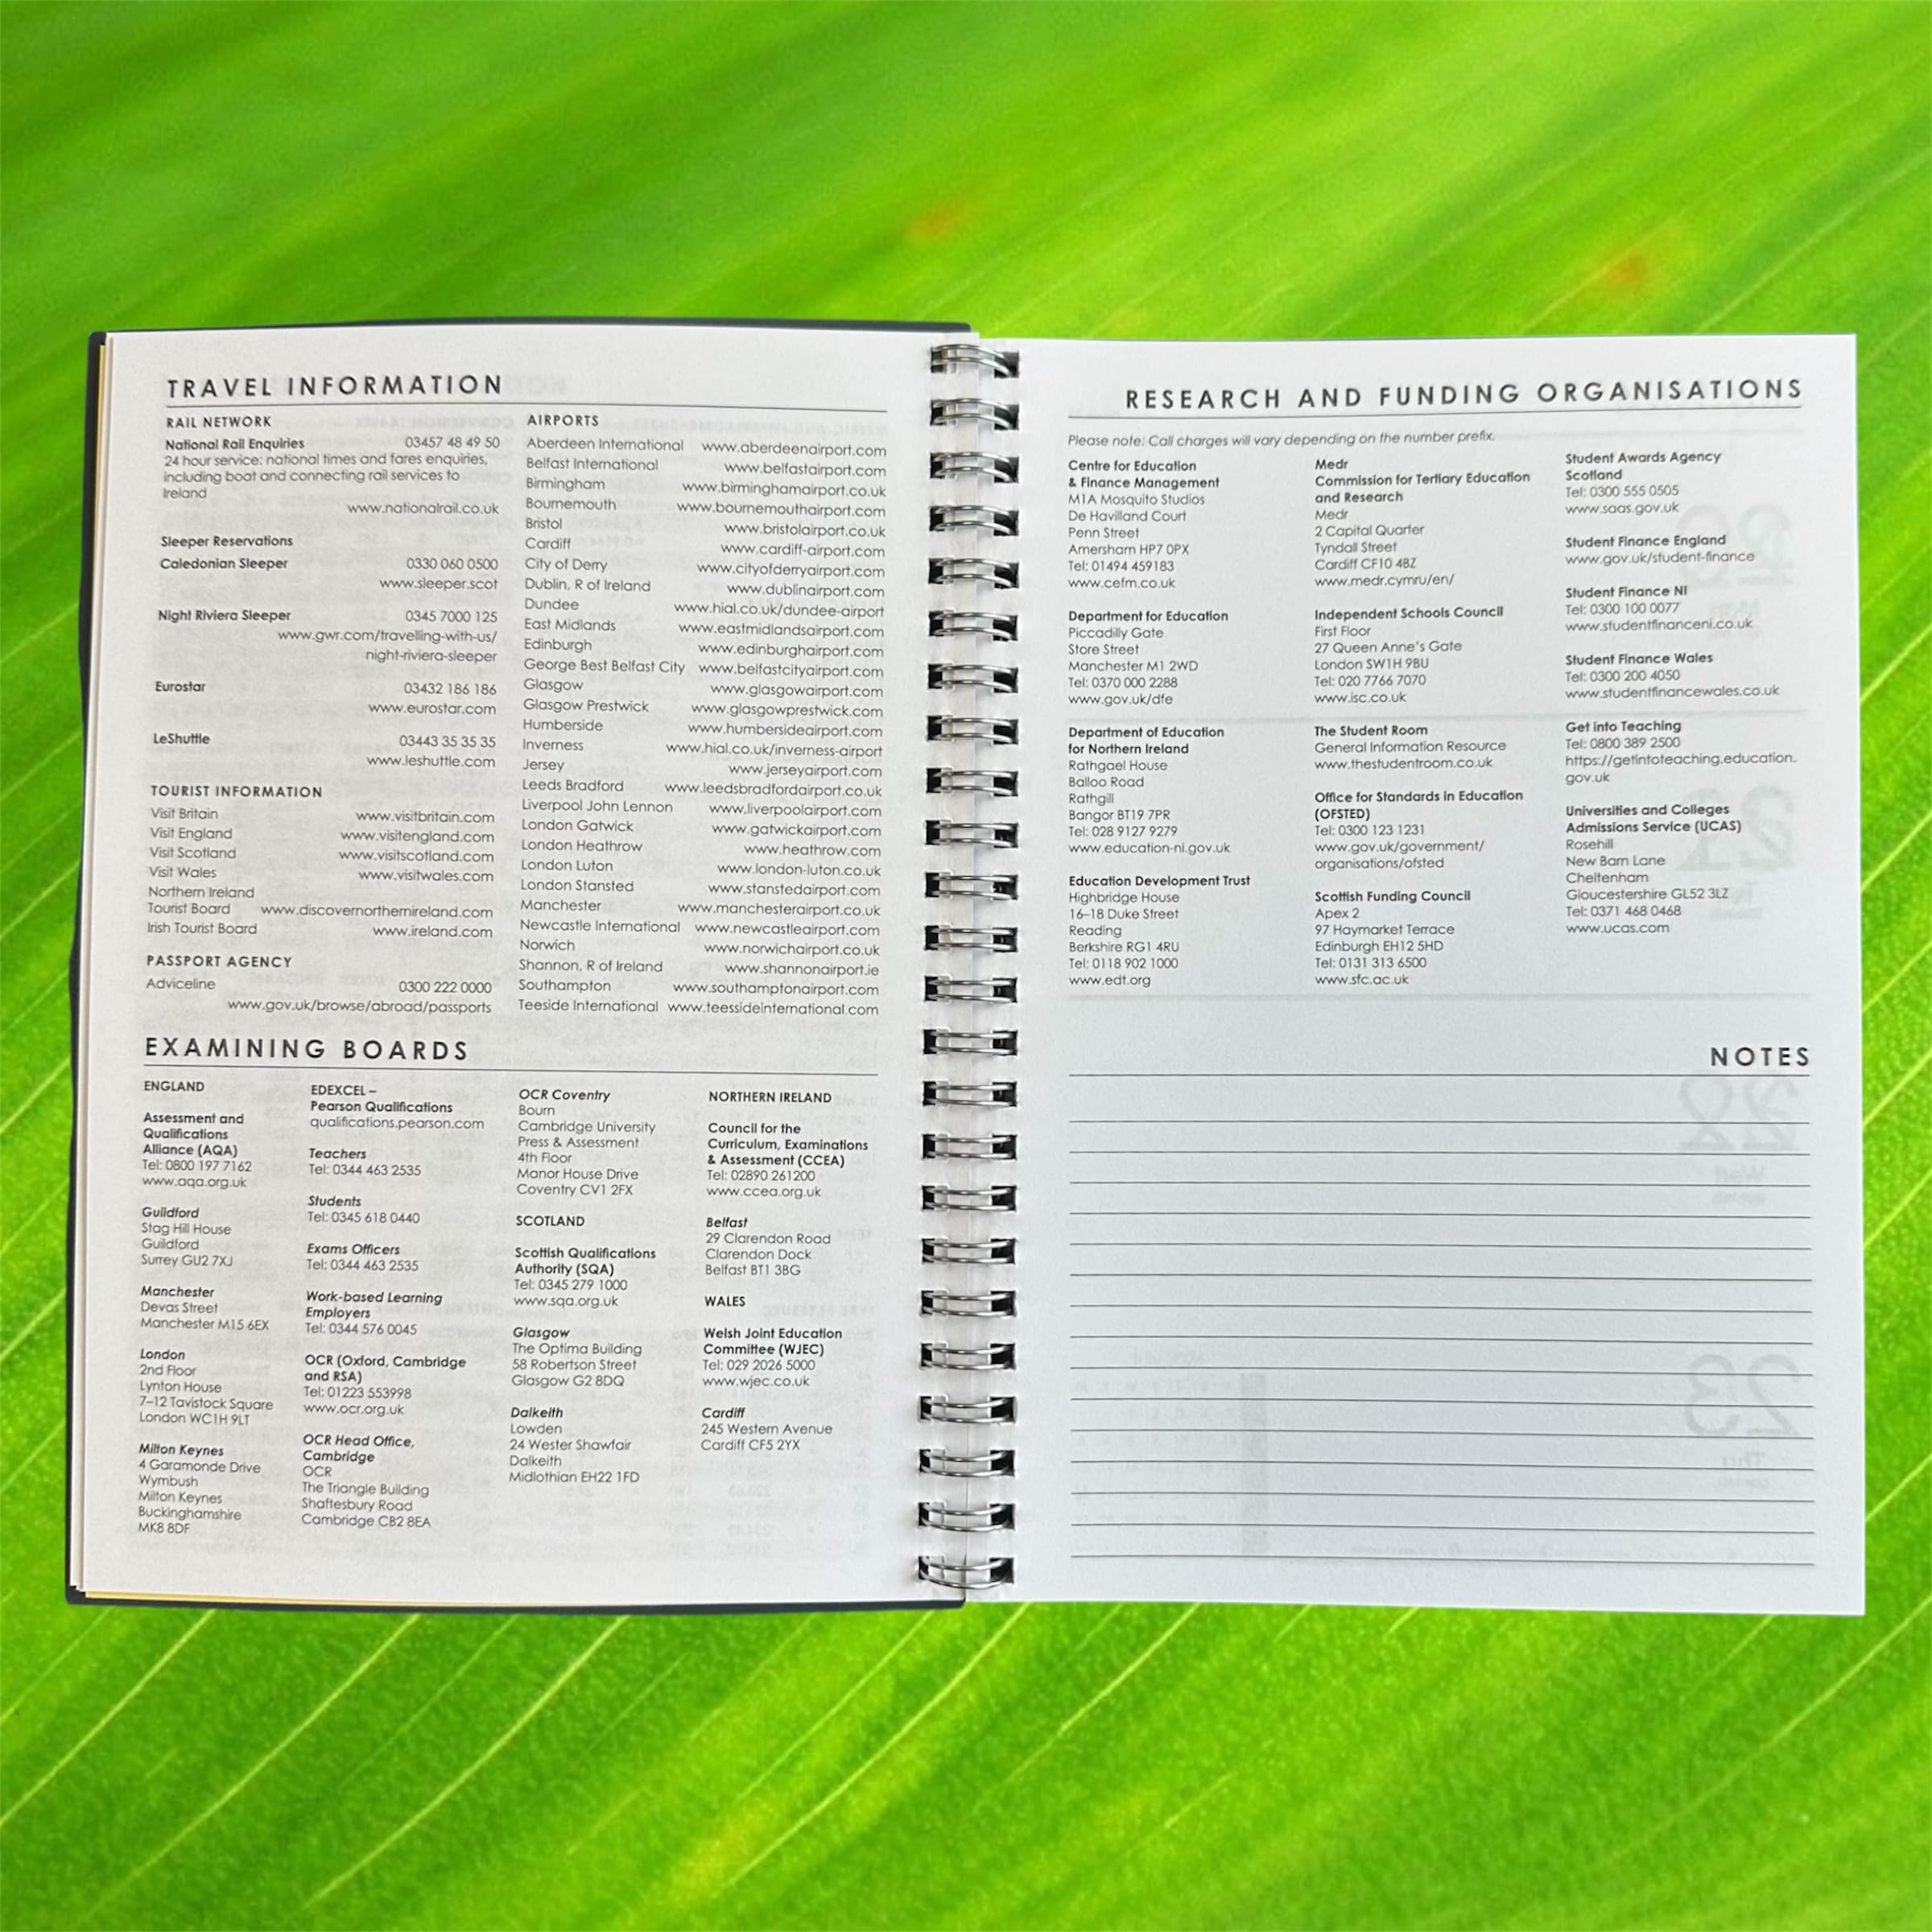 TRAVEL INFORMATION
RAIL NETWORK
National Rail Enquiries 03457 48 49 50
24 hour service: national times and fares enquiries,
including boat and connecting rail services to
Ireland
www.nationalrail.co.uk
Sleeper Reservations
Caledonian Sleeper 0330 060 0500
www.sleeper.scot
Night Riviera Sleeper 0345 7000 125
www.gwr.com/travelling-with-us/
night-riviera-sleeper
Eurostar 03432 186 186
www.eurostar.com
LeShuttle 03443 35 35 35
www.leshuttle.com
TOURIST INFORMATION
Visit Britain www.visitbritain.com
Visit England www.visitengland.com
Visit Scotland www.visitscotland.com
Visit Wales www.visitwales.com
Northern Ireland
Tourist Board www.discovernorthernireland.com
Irish Tourist Board www.ireland.com
PASSPORT AGENCY
Adviceline 0300 222 0000
www.gov.uk/browse/abroad/passports
AIRPORTS
Aberdeen International www.aberdeenairport.com
Belfast International www.belfastairport.com
Birmingham www.birminghamairport.co.uk
Bournemouth www.bournemouthairport.com
Bristol www.bristolairport.co.uk
Cardiff www.cardiff-airport.com
City of Derry www.cityofderryairport.com
Dublin, R of Ireland www.dublinairport.com
Dundee www.hial.co.uk/dundee-airport
East Midlands www.eastmidlandsairport.com
Edinburgh www.edinburghairport.com
George Best Belfast City www.belfastcityairport.com
Glasgow www.glasgowairport.com
Glasgow Prestwick www.glasgowprestwick.com
Humberside www.humbersideairport.com
Inverness www.hial.co.uk/inverness-airport
Jersey www.jerseyairport.com
Leeds Bradford www.leedsbradfordairport.co.uk
Liverpool John Lennon www.liverpoolairport.com
London Gatwick www.gatwickairport.com
London Heathrow www.heathrow.com
London Luton www.london-luton.co.uk
London Stansted www.stanstedairport.com
Manchester www.manchesterairport.co.uk
Newcastle International www.newcastleairport.com
Norwich www.norwichairport.co.uk
Shannon, R of Ireland www.shannonairport.ie
Southampton www.southamptonairport.com
Teeside International www.teessideinternational.com
EXAMINING BOARDS
ENGLAND
Assessment and
Qualifications
Alliance (AQA)
Tel: 0800 197 7162
www.aqa.org.uk
Guildford
Stag Hill House
Guildford
Surrey GU2 7XJ
Manchester
Devas Street
Manchester M15 6EX
London
2nd Floor
Lynton House
7–12 Tavistock Square
London WC1H 9LT
Milton Keynes
4 Garamonde Drive
Wymbush
Milton Keynes
Buckinghamshire
MK8 8DF
EDEXCEL –
Pearson Qualifications
qualifications.pearson.com
Teachers
Tel: 0344 463 2535
Students
Tel: 0345 618 0440
Exams Officers
Tel: 0344 463 2535
Work-based Learning
Employers
Tel: 0344 576 0045
OCR (Oxford, Cambridge
and RSA)
Tel: 01223 553998
www.ocr.org.uk
OCR Head Office,
Cambridge
OCR
The Triangle Building
Shaftesbury Road
Cambridge CB2 8EA
OCR Coventry
Bourn
Cambridge University
Press & Assessment
4th Floor
Manor House Drive
Coventry CV1 2FX
SCOTLAND
Scottish Qualifications
Authority (SQA)
Tel: 0345 279 1000
www.sqa.org.uk
Glasgow
The Optima Building
58 Robertson Street
Glasgow G2 8DQ
Dalkeith
Lowden
24 Wester Shawfair
Dalkeith
Midlothian EH22 1FD
NORTHERN IRELAND
Council for the
Curriculum, Examinations
& Assessment (CCEA)
Tel: 02890 261200
www.ccea.org.uk
Belfast
29 Clarendon Road
Clarendon Dock
Belfast BT1 3BG
WALES
Welsh Joint Education
Committee (WJEC)
Tel: 029 2026 5000
www.wjec.co.uk
Cardiff
245 Western Avenue
Cardiff CF5 2YX
RESEARCH AND FUNDING ORGANISATIONS
Please note: Call charges will vary depending on the number prefix.
Centre for Education
& Finance Management
M1A Mosquito Studios
De Havilland Court
Penn Street
Amersham HP7 0PX
Tel: 01494 459183
www.cefm.co.uk
Department for Education
Piccadilly Gate
Store Street
Manchester M1 2WD
Tel: 0370 000 2288
www.gov.uk/dfe
Department of Education
for Northern Ireland
Rathgael House
Balloo Road
Rathgill
Bangor BT19 7PR
Tel: 028 9127 9279
www.education-ni.gov.uk
Education Development Trust
Highbridge House
16–18 Duke Street
Reading
Berkshire RG1 4RU
Tel: 0118 902 1000
www.edt.org
Medr
Commission for Tertiary Education
and Research
Medr
2 Capital Quarter
Tyndall Street
Cardiff CF10 4BZ
www.medr.cymru/en/
Independent Schools Council
First Floor
27 Queen Anne's Gate
London SW1H 9BU
Tel: 020 7766 7070
www.isc.co.uk
The Student Room
General Information Resource
www.thestudentroom.co.uk
Office for Standards in Education
(OFSTED)
Tel: 0300 123 1231
www.gov.uk/government/
organisations/ofsted
Scottish Funding Council
Apex 2
97 Haymarket Terrace
Edinburgh EH12 5HD
Tel: 0131 313 6500
www.sfc.ac.uk
Student Awards Agency
Scotland
Tel: 0300 555 0505
www.saas.gov.uk
Student Finance England
www.gov.uk/student-finance
Student Finance NI
Tel: 0300 100 0077
www.studentfinanceni.co.uk
Student Finance Wales
Tel: 0300 200 4050
www.studentfinancewales.co.uk
Get into Teaching
Tel: 0800 389 2500
https://getintoteaching.education.
gov.uk
Universities and Colleges
Admissions Service (UCAS)
Rosehill
New Barn Lane
Cheltenham
Gloucestershire GL52 3LZ
Tel: 0371 468 0468
www.ucas.com
NOTES